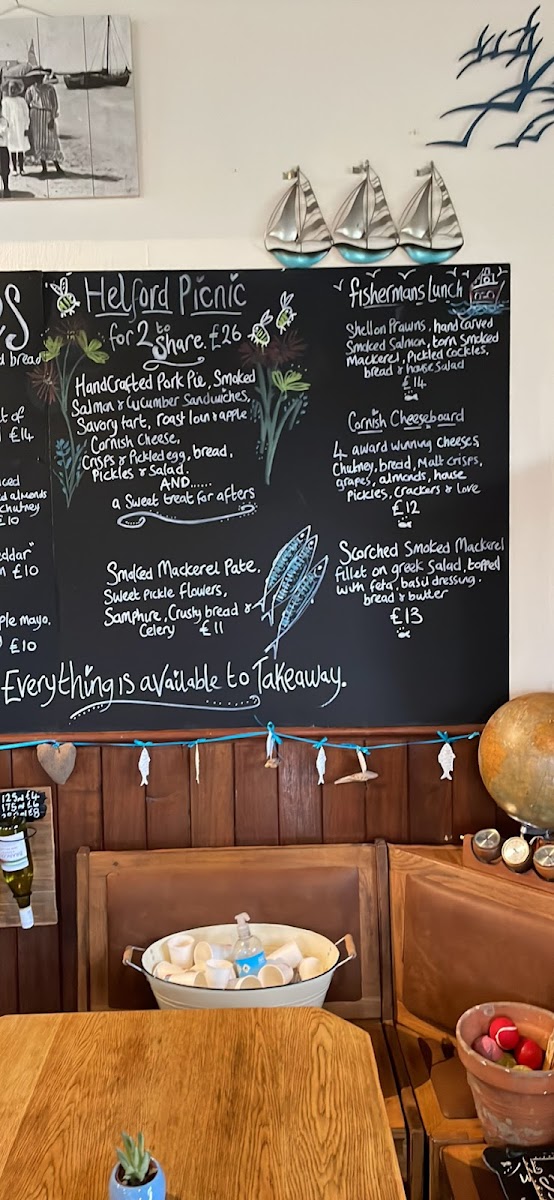 d bread
of
£14
almonds
chutney
£10
eddar"
£10
ple mayo.
£10
Helford Picnic
for 2 to Share. £26
HandCrafted Pork Pie, Smoked
Salmon & Cucumber Sandwiches,
Savory tart, roast loin & apple
Cornish Cheese,
Crisps & Pickled egg, bread,
Pickles & Salad.
AND......
a Sweet treat for afters
Smoked Mackerel Pate.
Sweet Pickle Flowers,
Samphire, Crusty bread &
Celery £11
fishermans Lunch
Shell on Prawns, hand Carved
Smoked Salmon, torn Smoked
Mackerel, Pickled Cockles,
bread & house Salad
£14
Cornish Cheeseboard
4 award winning cheeses
Chutney, bread, Malt crisps,
grapes, almonds, house
Pickles, Crackers & love
£12
Scorched Smoked Mackerel
Fillet on greek Salad, topped
with feta, basil dressing.
bread & butter
£13
Everything is available to Takeaway.
125ml £4
175ml £6
£8